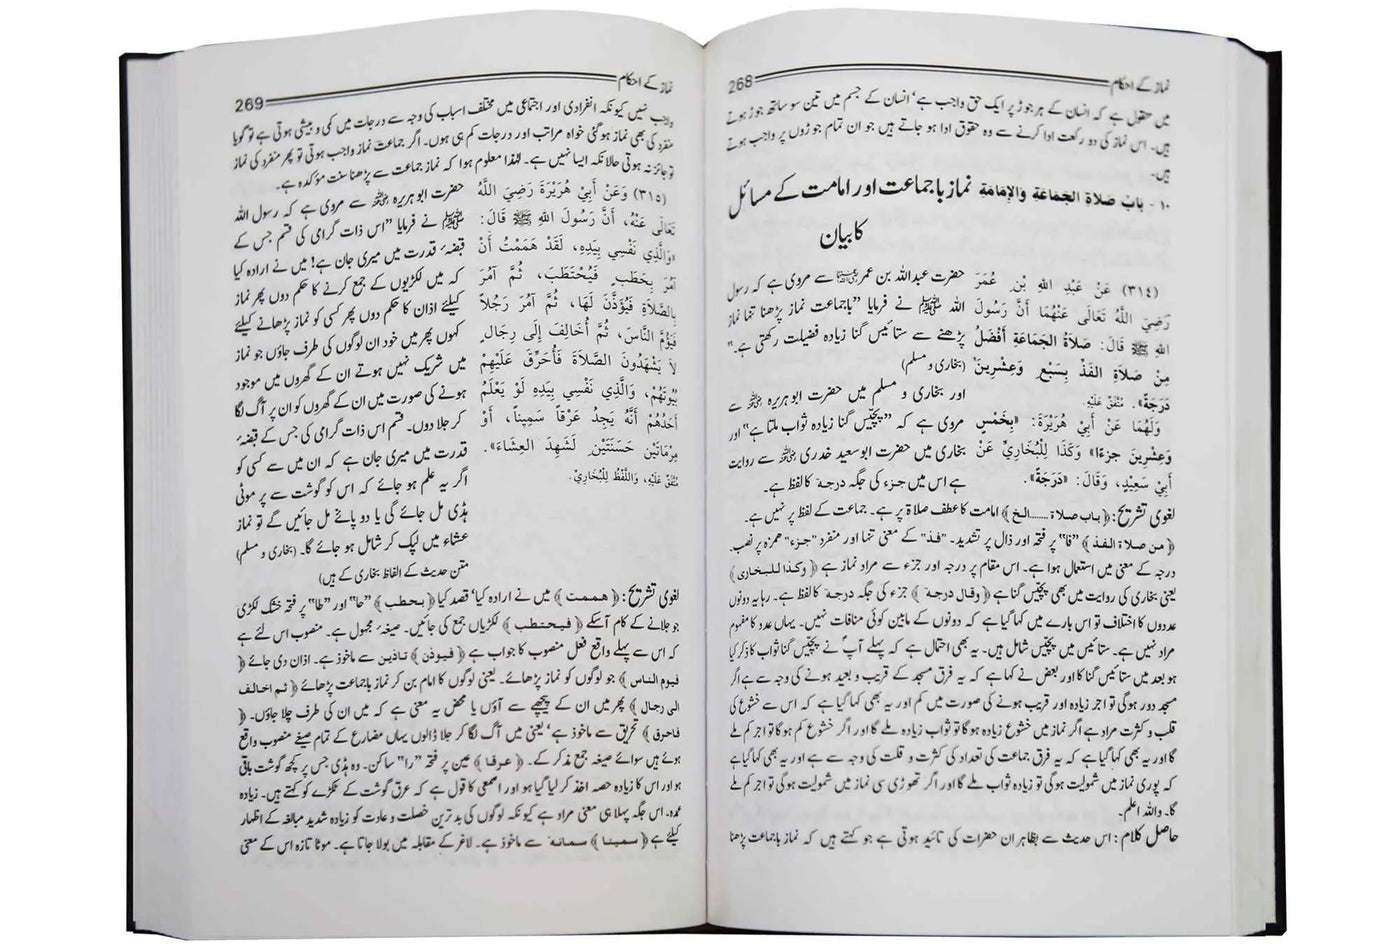 نماز کے احکام 268
میں منقول ہے کہ انسان کے ہر جوڑ پر ایک حق واجب ہے' انسان کے جسم میں تین سو ساٹھ جوڑ ہوتے
ہیں۔ اس نماز کی دو رکعت ادا کرنے سے وہ حقوق ادا ہو جاتے ہیں جو ان تمام جوڑوں پر واجب ہوتے
ہیں۔
١٠ - بَابُ صَلَاةِ الجَمَاعَةِ وَالإِمَامَةِ نماز باجماعت اور امامت کے مسائل
کا بیان
(٣١٤) عَنْ عَبْدِ اللَّهِ بْنِ عُمَرَ
رَضِيَ اللَّهُ تَعَالَى عَنْهُمَا أَنَّ رَسُولَ
اللهِ ﷺ قَالَ: صَلاَةُ الجَمَاعَةِ أَفْضَلُ
مِنْ صَلاَةِ الفَذِّ بِسَبْعٍ وَعِشْرِينَ
دَرَجَةً». مُتَّفَقٌ عَلَيْهِ.
وَلَهُمَا عَنْ أَبِي هُرَيْرَةَ: «بِخَمْسٍ
وَعِشْرِينَ جزءًا» وَكَذَا لِلْبُخَارِيِّ عَنْ
أَبِي سَعِيدٍ، وَقَالَ: «دَرَجَةً».
حضرت عبداللہ بن عمر سے مروی ہے کہ رسول
اللہ ﷺ نے فرمایا "باجماعت نماز پڑھنا تنہا نماز
پڑھنے سے ستائیس گنا زیادہ فضیلت رکھتی ہے۔"
(بخاری و مسلم)
اور بخاری و مسلم میں حضرت ابوہریرہ سے
مروی ہے کہ "پچیس گنا زیادہ ثواب ملتا ہے" اور
بخاری میں حضرت ابوسعید خدری سے روایت
ہے اس میں جزء کی جگہ درجۃ کا لفظ ہے۔
لغوی تشریح: ﴿ باب صلاة......الخ ﴾ امامت کا عطف صلاۃ پر ہے۔ جماعت کے لفظ پر نہیں ہے۔
﴿ من صلاة الفذ ﴾ "فا" پر فتحہ اور ذال پر تشدید۔ "فذ" کے معنی تنہا اور منفرد "جزء" ہمزہ پر نصب۔
درجہ کے معنی میں استعمال ہوا ہے۔ اس مقام پر درجہ اور جزء سے مراد نماز ہے ﴿ وكذا للبخاري ﴾
یعنی بخاری کی روایت میں بھی پچیس گنا ہے ﴿ وقال درجة ﴾ جزء کی جگہ درجۃ کا لفظ ہے۔ رہا یہ دونوں
عددوں کا اختلاف تو اس بارے میں کہا گیا ہے کہ دونوں کے مابین کوئی منافات نہیں۔ یہاں عدد کا مفہوم
مراد نہیں ہے۔ ستائیس میں پچیس شامل ہیں۔ یہ بھی احتمال ہے کہ پہلے آپؐ نے پچیس گنا ثواب کا ذکر کیا
ہو بعد میں ستائیس گنا کا اور بعض نے کہا ہے کہ یہ فرق مسجد کے قریب و بعید ہونے کی وجہ سے ہے اگر
مسجد دور ہوگی تو اجر زیادہ اور قریب ہونے کی صورت میں کم اور یہ بھی کہا گیا ہے کہ اس سے خشوع کی
قلب و کثرت مراد ہے اگر نماز میں خشوع زیادہ ہوگا تو ثواب زیادہ ملے گا اور اگر خشوع کم ہوگا تو اجر کم ملے
گا اور یہ بھی کہا گیا ہے کہ یہ فرق جماعت کی تعداد کی کثرت و قلت کی وجہ سے ہے اور یہ بھی کہا گیا ہے
کہ پوری نماز میں شمولیت ہوگی تو زیادہ ثواب ملے گا اور اگر تھوڑی سی نماز میں شمولیت ہوگی تو اجر کم ملے
گا۔ واللہ اعلم۔
حاصل کلام: اس حدیث سے بظاہر ان حضرات کی تائید ہوتی ہے جو کہتے ہیں کہ نماز باجماعت پڑھنا
نماز کے احکام 269
واجب نہیں کیونکہ انفرادی اور اجتماعی میں مختلف اسباب کی وجہ سے درجات میں کمی و بیشی ہوتی ہے تو گویا
منفرد کی بھی نماز ہوگئی خواہ مراتب اور درجات کم ہی ہوں۔ اگر جماعت نماز واجب ہوتی تو پھر منفرد کی نماز
تو جائز نہ ہوتی حالانکہ ایسا نہیں ہے۔ لہٰذا معلوم ہوا کہ نماز جماعت سے پڑھنا سنت مؤکدہ ہے۔
(٣١٥) وَعَنْ أَبِي هُرَيْرَةَ رَضِيَ اللَّهُ
تَعَالَى عَنْهُ، أَنَّ رَسُولَ اللهِ ﷺ قَالَ:
«وَالَّذِي نَفْسِي بِيَدِهِ، لَقَدْ هَمَمْتُ أَنْ
آمُرَ بِحَطَبٍ فَيُحْتَطَبَ، ثُمَّ آمُرَ
بِالصَّلاَةِ فَيُؤَذَّنَ لَهَا، ثُمَّ آمُرَ رَجُلاً
فَيَؤُمَّ النَّاسَ، ثُمَّ أُخَالِفَ إِلَى رِجَالٍ
لاَ يَشْهَدُونَ الصَّلاَةَ فَأُحَرِّقَ عَلَيْهِمْ
بُيُوتَهُمْ، وَالَّذِي نَفْسِي بِيَدِهِ لَوْ يَعْلَمُ
أَحَدُهُمْ أَنَّهُ يَجِدُ عَرْقاً سَمِيناً، أَوْ
مِرْمَاتَيْنِ حَسَنَتَيْنِ لَشَهِدَ العِشَاءَ».
مُتَّفَقٌ عَلَيْهِ، وَاللَّفْظُ لِلْبُخَارِيِّ.
حضرت ابوہریرہ سے مروی ہے کہ رسول اللہ
ﷺ نے فرمایا "اس ذات گرامی کی قسم جس کے
قبضۂ قدرت میں میری جان ہے! میں نے ارادہ کیا
کہ میں لکڑیوں کے جمع کرنے کا حکم دوں پھر نماز
کیلئے اذان کا حکم دوں پھر کسی کو نماز پڑھانے کیلئے
کہوں پھر میں خود ان لوگوں کی طرف جاؤں جو نماز
میں شریک نہیں ہوتے ان کے گھروں میں موجود
ہونے کی صورت میں ان کے گھروں کو ان پر آگ لگا
کر جلا دوں۔ قسم اس ذات گرامی کی جس کے قبضۂ
قدرت میں میری جان ہے کہ ان میں سے کسی کو
اگر یہ علم ہو جائے کہ اس کو گوشت سے پر موٹی
ہڈی مل جائے گی یا دو پائے مل جائیں گے تو نماز
عشاء میں لپک کر شامل ہو جائے گا۔ (بخاری و مسلم)
متن حدیث کے الفاظ بخاری کے ہیں)
لغوی تشریح: ﴿ هممت ﴾ میں نے ارادہ کیا' قصد کیا ﴿ بحطب ﴾ "حا" اور "طا" پر فتحہ خشک لکڑی
جو جلانے کے کام آسکے ﴿ فيحتطب ﴾ لکڑیاں جمع کی جائیں۔ صیغہ مجہول ہے۔ منصوب اس لئے ہے
کہ اس سے پہلے واقع فعل منصوب کا جواب ہے ﴿ فيوذن ﴾ تاذین سے ماخوذ ہے۔ اذان دی جائے ﴿
فيوم الناس ﴾ جو لوگوں کو نماز پڑھائے۔ یعنی لوگوں کا امام بن کر نماز باجماعت پڑھائے ﴿ ثم اخالف
الى رجال ﴾ پھر میں ان کے پیچھے سے آؤں یا محض یہ معنی ہے کہ میں ان کی طرف چلا جاؤں۔ ﴿
فاحرق ﴾ تحریق سے ماخوذ ہے' یعنی میں آگ لگا کر جلا ڈالوں یہاں مضارع کے تمام صیغے منصوب واقع
ہوئے ہیں سوائے صیغہ جمع مذکر کے۔ ﴿ عرقا ﴾ عین پر فتحہ "را" ساکن۔ وہ ہڈی جس پر کچھ گوشت باقی
ہو اور اس کا زیادہ حصہ اخذ کر لیا گیا ہو اور اصمعی کا قول ہے کہ عرق گوشت کے ٹکڑے کو کہتے ہیں۔ زیادہ
عمدہ۔ اس جگہ پہلا ہی معنی مراد ہے کیونکہ لوگوں کی بدترین خصلت و عادت کو زیادہ شدید مبالغہ کے اظہار
کیلئے ہے ﴿ سمينا ﴾ سمانة سے ماخوذ ہے۔ لاغر کے مقابلہ میں بولا جاتا ہے۔ موٹا تازہ اس کے معنی